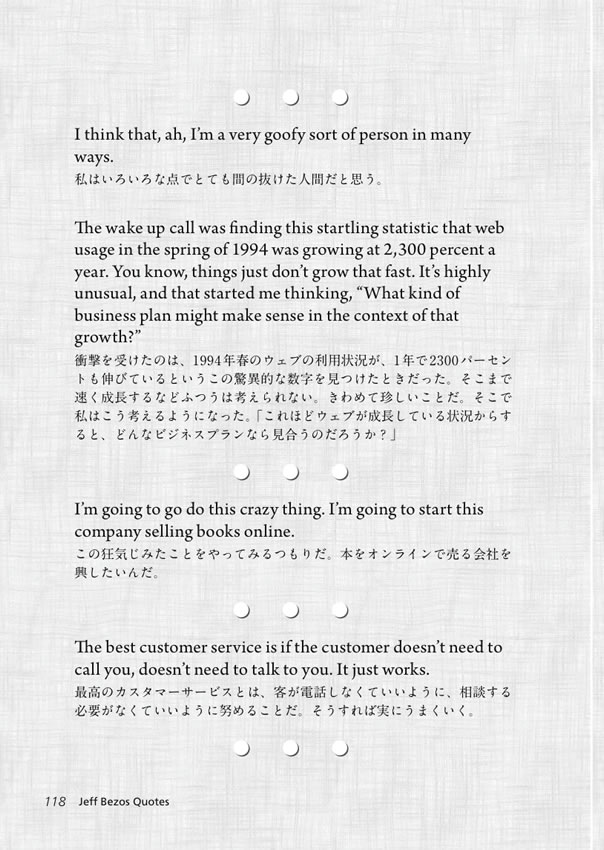 I think that, ah, I’m a very goofy sort of person in many
ways.
私はいろいろな点でとても間の抜けた人間だと思う。
The wake up call was finding this startling statistic that web
usage in the spring of 1994 was growing at 2,300 percent a
year. You know, things just don’t grow that fast. It’s highly
unusual, and that started me thinking, “What kind of
business plan might make sense in the context of that
growth?”
衝撃を受けたのは、1994年春のウェブの利用状況が、1年で2300パーセン
トも伸びているというこの驚異的な数字を見つけたときだった。そこまで
速く成長するなどふつうは考えられない。きわめて珍しいことだ。そこで
私はこう考えるようになった。「これほどウェブが成長している状況からす
ると、どんなビジネスプランなら見合うのだろうか？」
I’m going to go do this crazy thing. I’m going to start this
company selling books online.
この狂気じみたことをやってみるつもりだ。本をオンラインで売る会社を
興したいんだ。
The best customer service is if the customer doesn’t need to
call you, doesn’t need to talk to you. It just works.
最高のカスタマーサービスとは、客が電話しなくていいように、相談する
必要がなくていいように努めることだ。そうすれば実にうまくいく。
118 Jeff Bezos Quotes